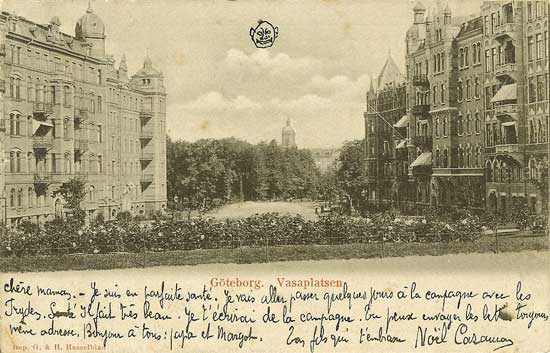 Göteborg. Vasaplatsen
chère maman - Je suis en parfaite santé. Je vais aller passer quelques jours à la campagne avec les
Trydes. Santé Il fait très beau. Je t'écrirai de la campagne. Tu peux envoyer les lettres toujours
même adresse. Bonjour à tous: papa et Margot. Ton fils qui t'embrasse Noël
Imp. G. & H. Hasselblad